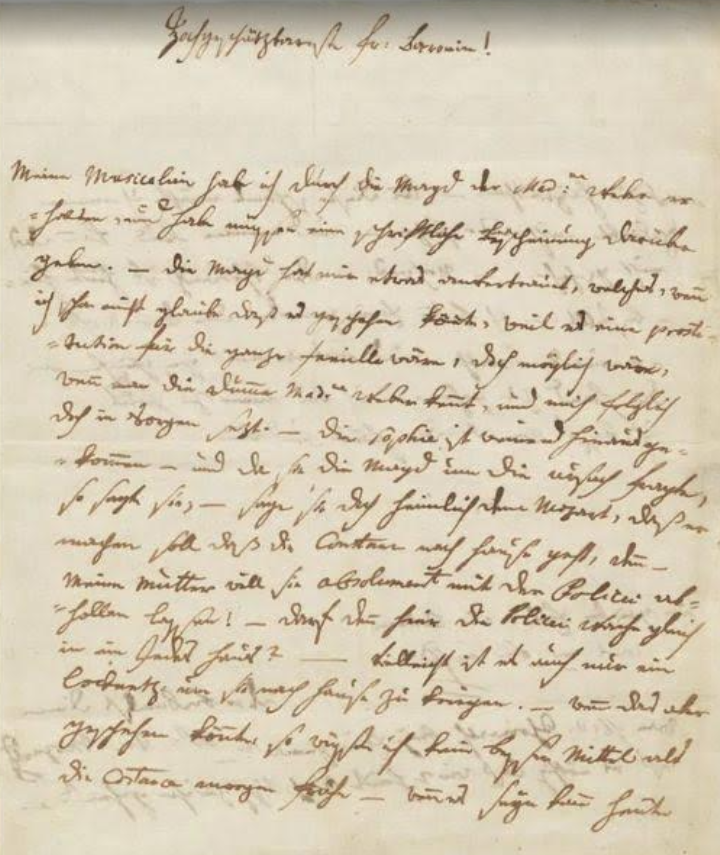 Hochschätzbareste fr: Baronin!
Meine Musicalien habe ich durch die Magd der Mad:me Weber er
=halten, und habe müssen eine schriftliche bescheinung darüber
geben. — die Magd hat mir etwas anvertrauet, welches, wenn
ich schon nicht glaube daß es geschehen könnte, weil es eine prosti-
=tution für die ganze familie wäre, doch möglich wäre,
wenn man die dumme Mad:me Weber kennt, und mich folglich
doch in Sorgen setzt. — die Sophie ist weinend hinausge=
=kommen — und da sie die Magd um die ursach fragte,
so sagte sie, — sage sie doch heimlich dem Mozart, daß er
machen soll daß die Constanz nach hause geht, denn —
meine Mutter will sie absolument mit der Policei ab=
=hollen lassen! — darf denn hier die Policei Wache gleich
in ein Jedes haus? —— Vielleicht ist es auch nur ein
locknetz um sie nach hause zu kriegen. — wenn das aber
geschehen könnte, so wüsste ich kein bessers Mittel als
die Costanza morgen frühe — wenns seyn kann heute